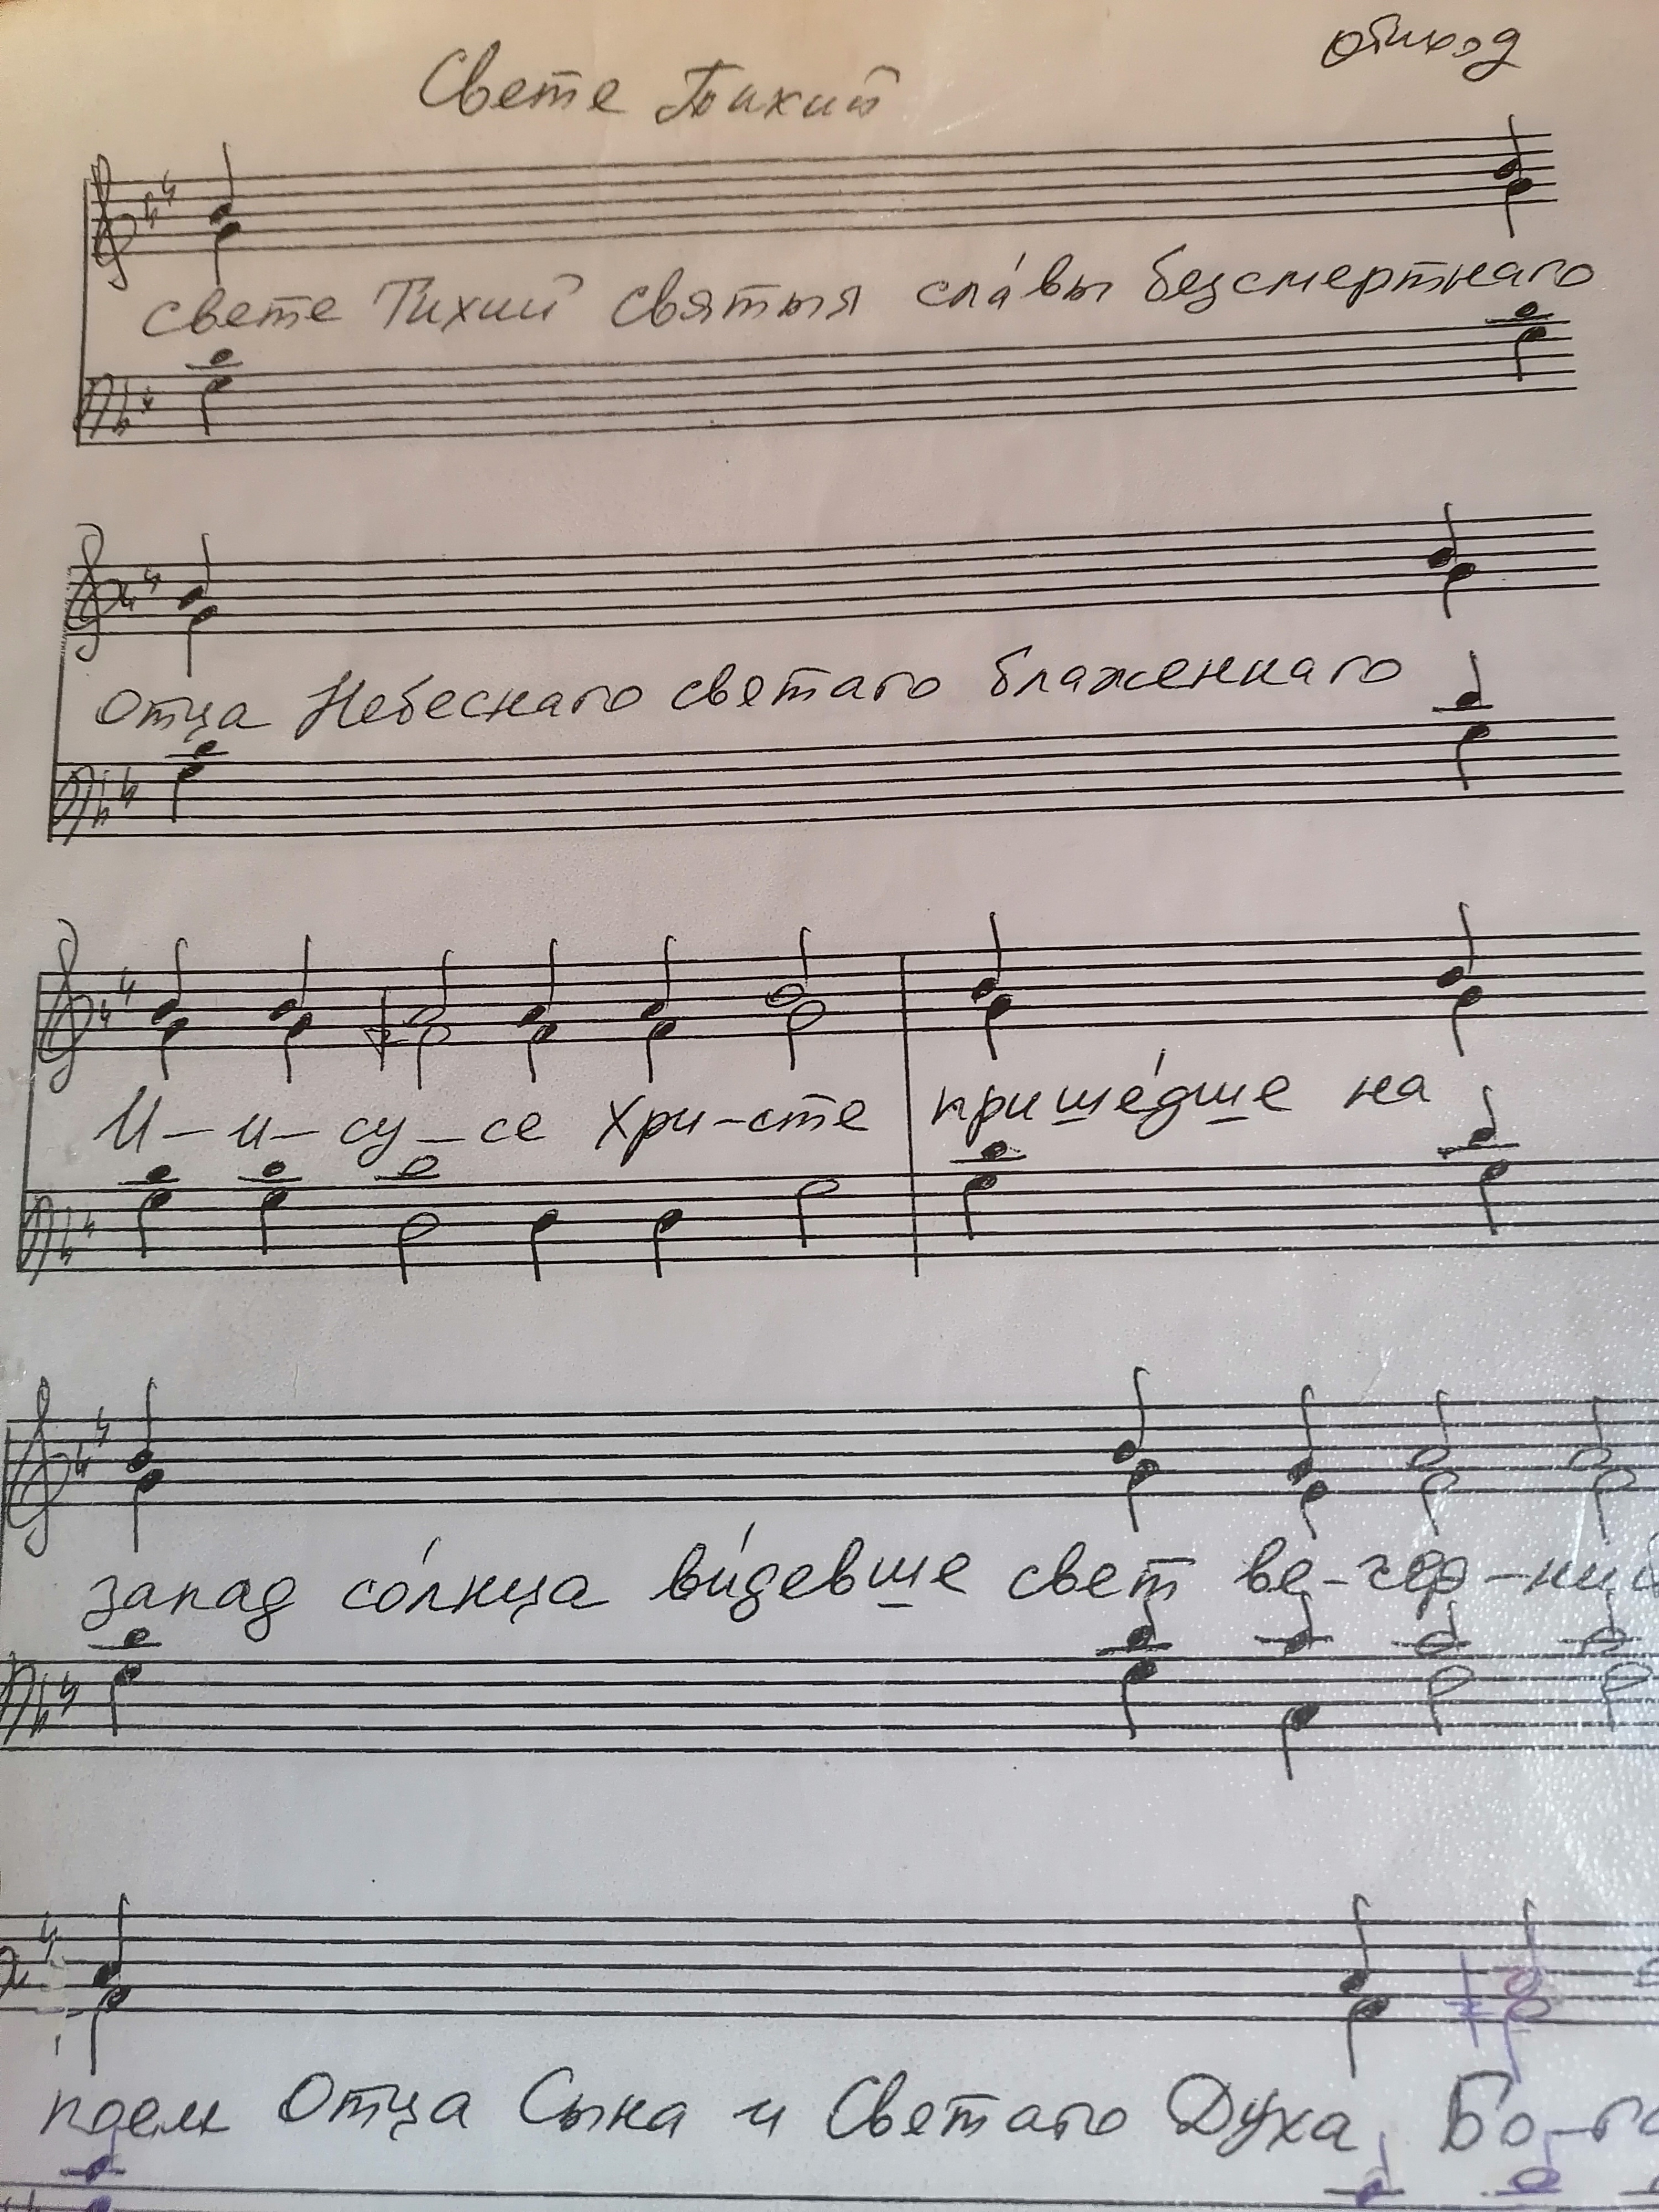 Свете Тихий
обиход
свете Тихий святыя сла́вы безсмертнаго
отца Небеснаго святаго блаженнаго
И-и-су-се Хри-сте прише́дше на
запад со́лнца ви́девше свет ве-чер-ний
поем Отца Сына и Святаго Духа Бо-га